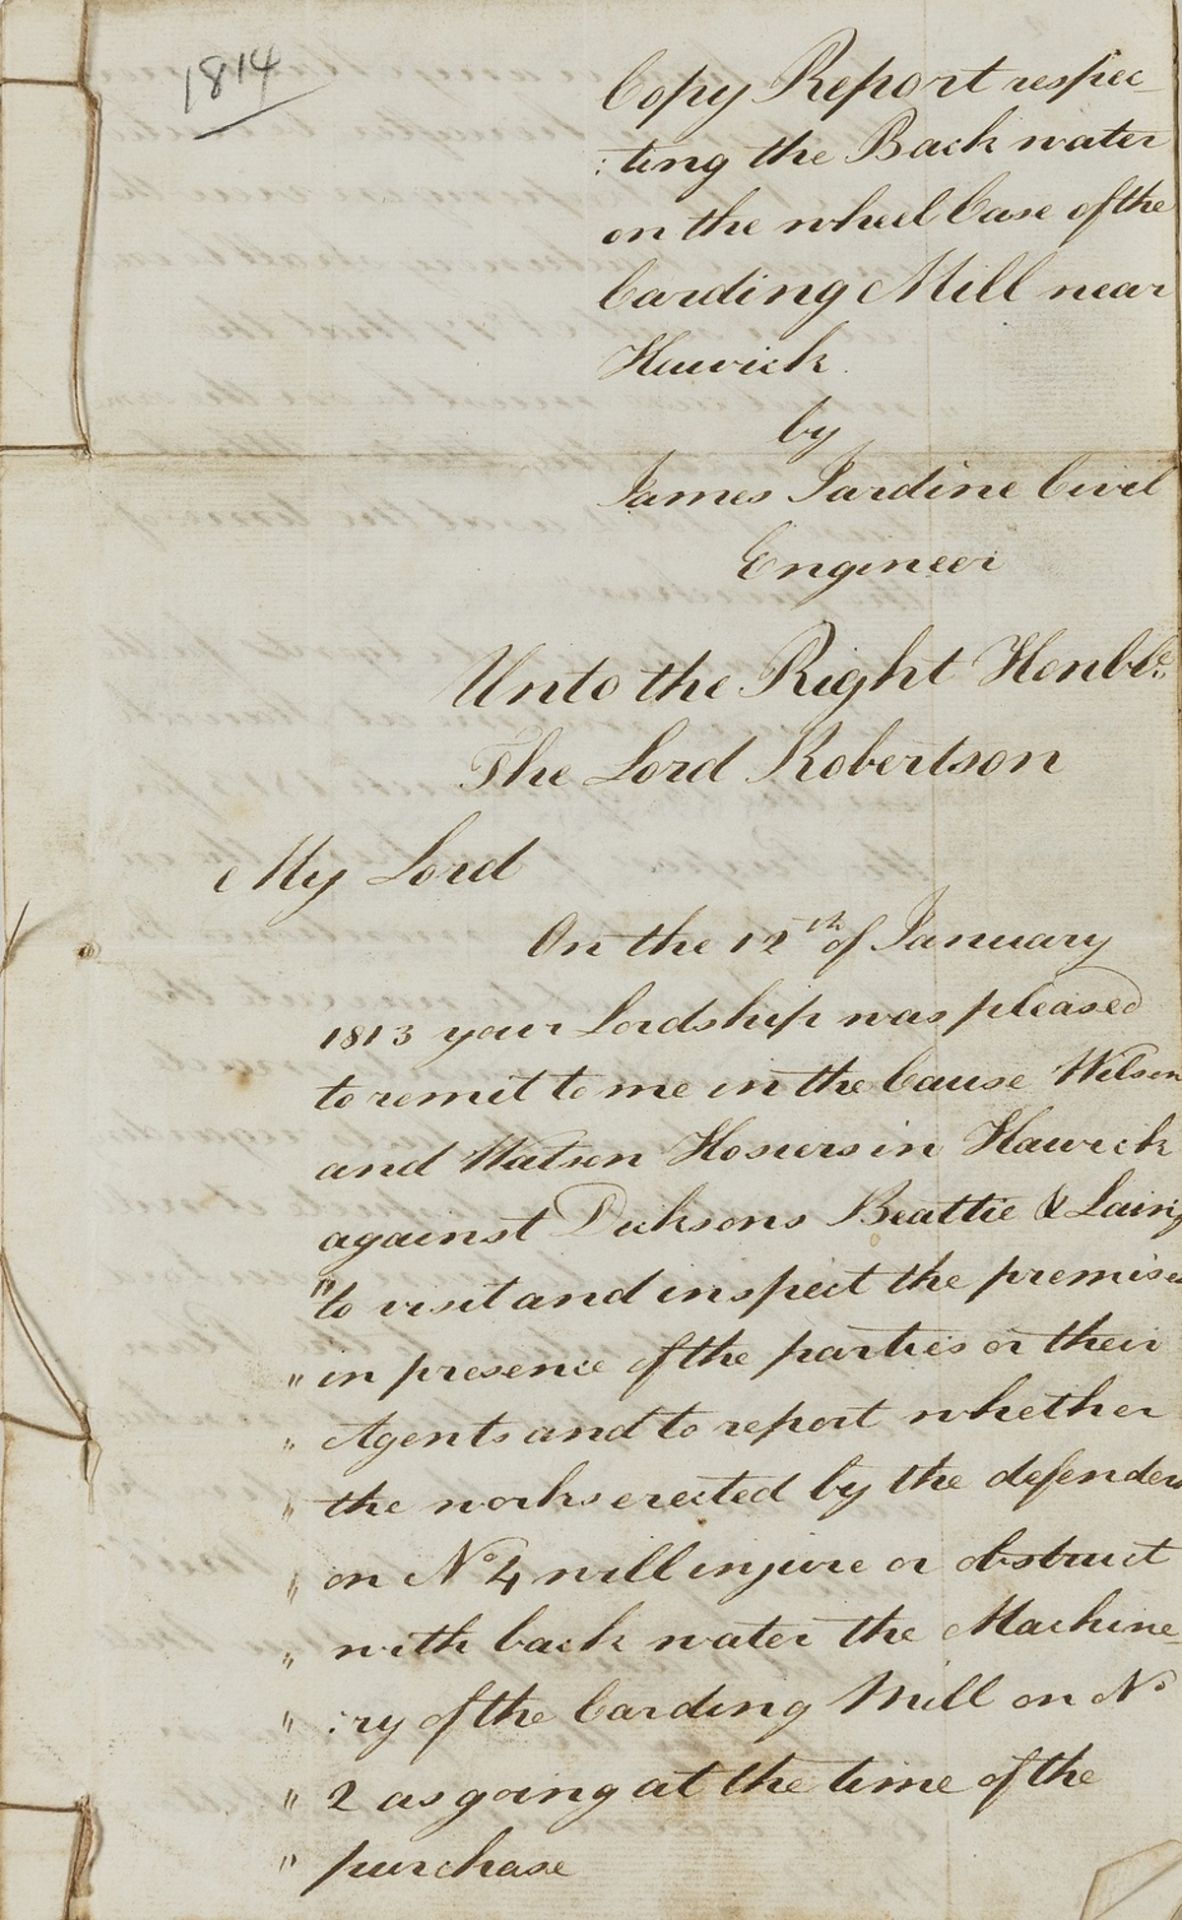 1814
Copy Report respec
:ting the Back water
on the wheel Case of the
Carding Mill near
Hawick
by
James Jardine Civil
Engineer
Unto the Right Honble.
The Lord Robertson
My Lord
On the 12th of January
1813 your Lordship was pleased
to remit to me in the Cause Wilson
and Watson Hosiers in Hawick
against Dicksons Beattie & Laing
"to visit and inspect the premises
" in presence of the parties or their
" Agents and to report whether
" the works erected by the defenders
" on No 4 will injure or obstruct
" with back water the Machine_
" :ry of the Carding Mill on No
" 2 as going at the time of the
" purchase